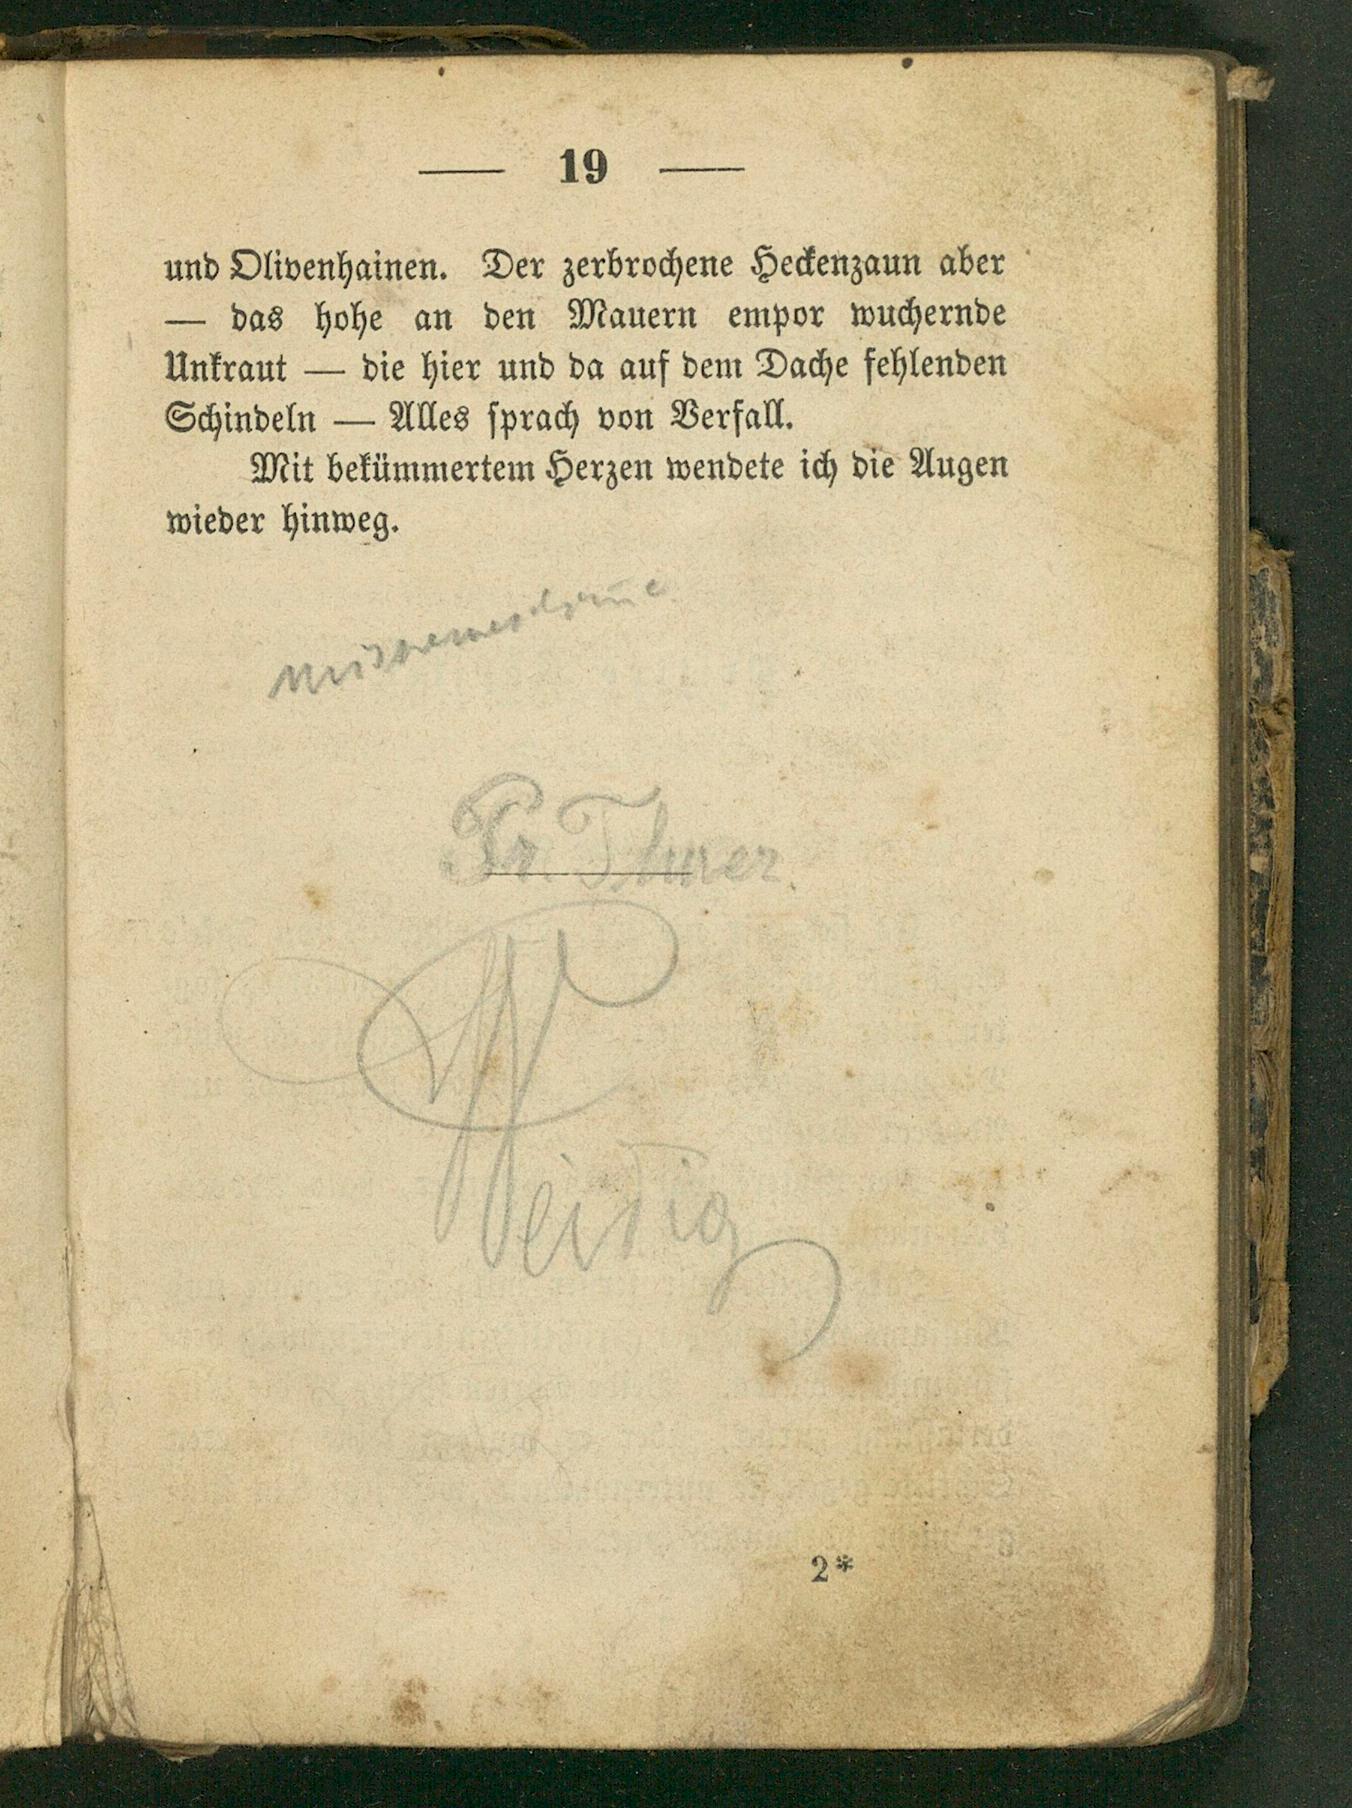 — 19 —
und Olivenhainen. Der zerbrochene Heckenzaun aber
— das hohe an den Mauern empor wuchernde
Unkraut — die hier und da auf dem Dache fehlenden
Schindeln — Alles sprach von Verfall.
Mit bekümmertem Herzen wendete ich die Augen
wieder hinweg.
2*